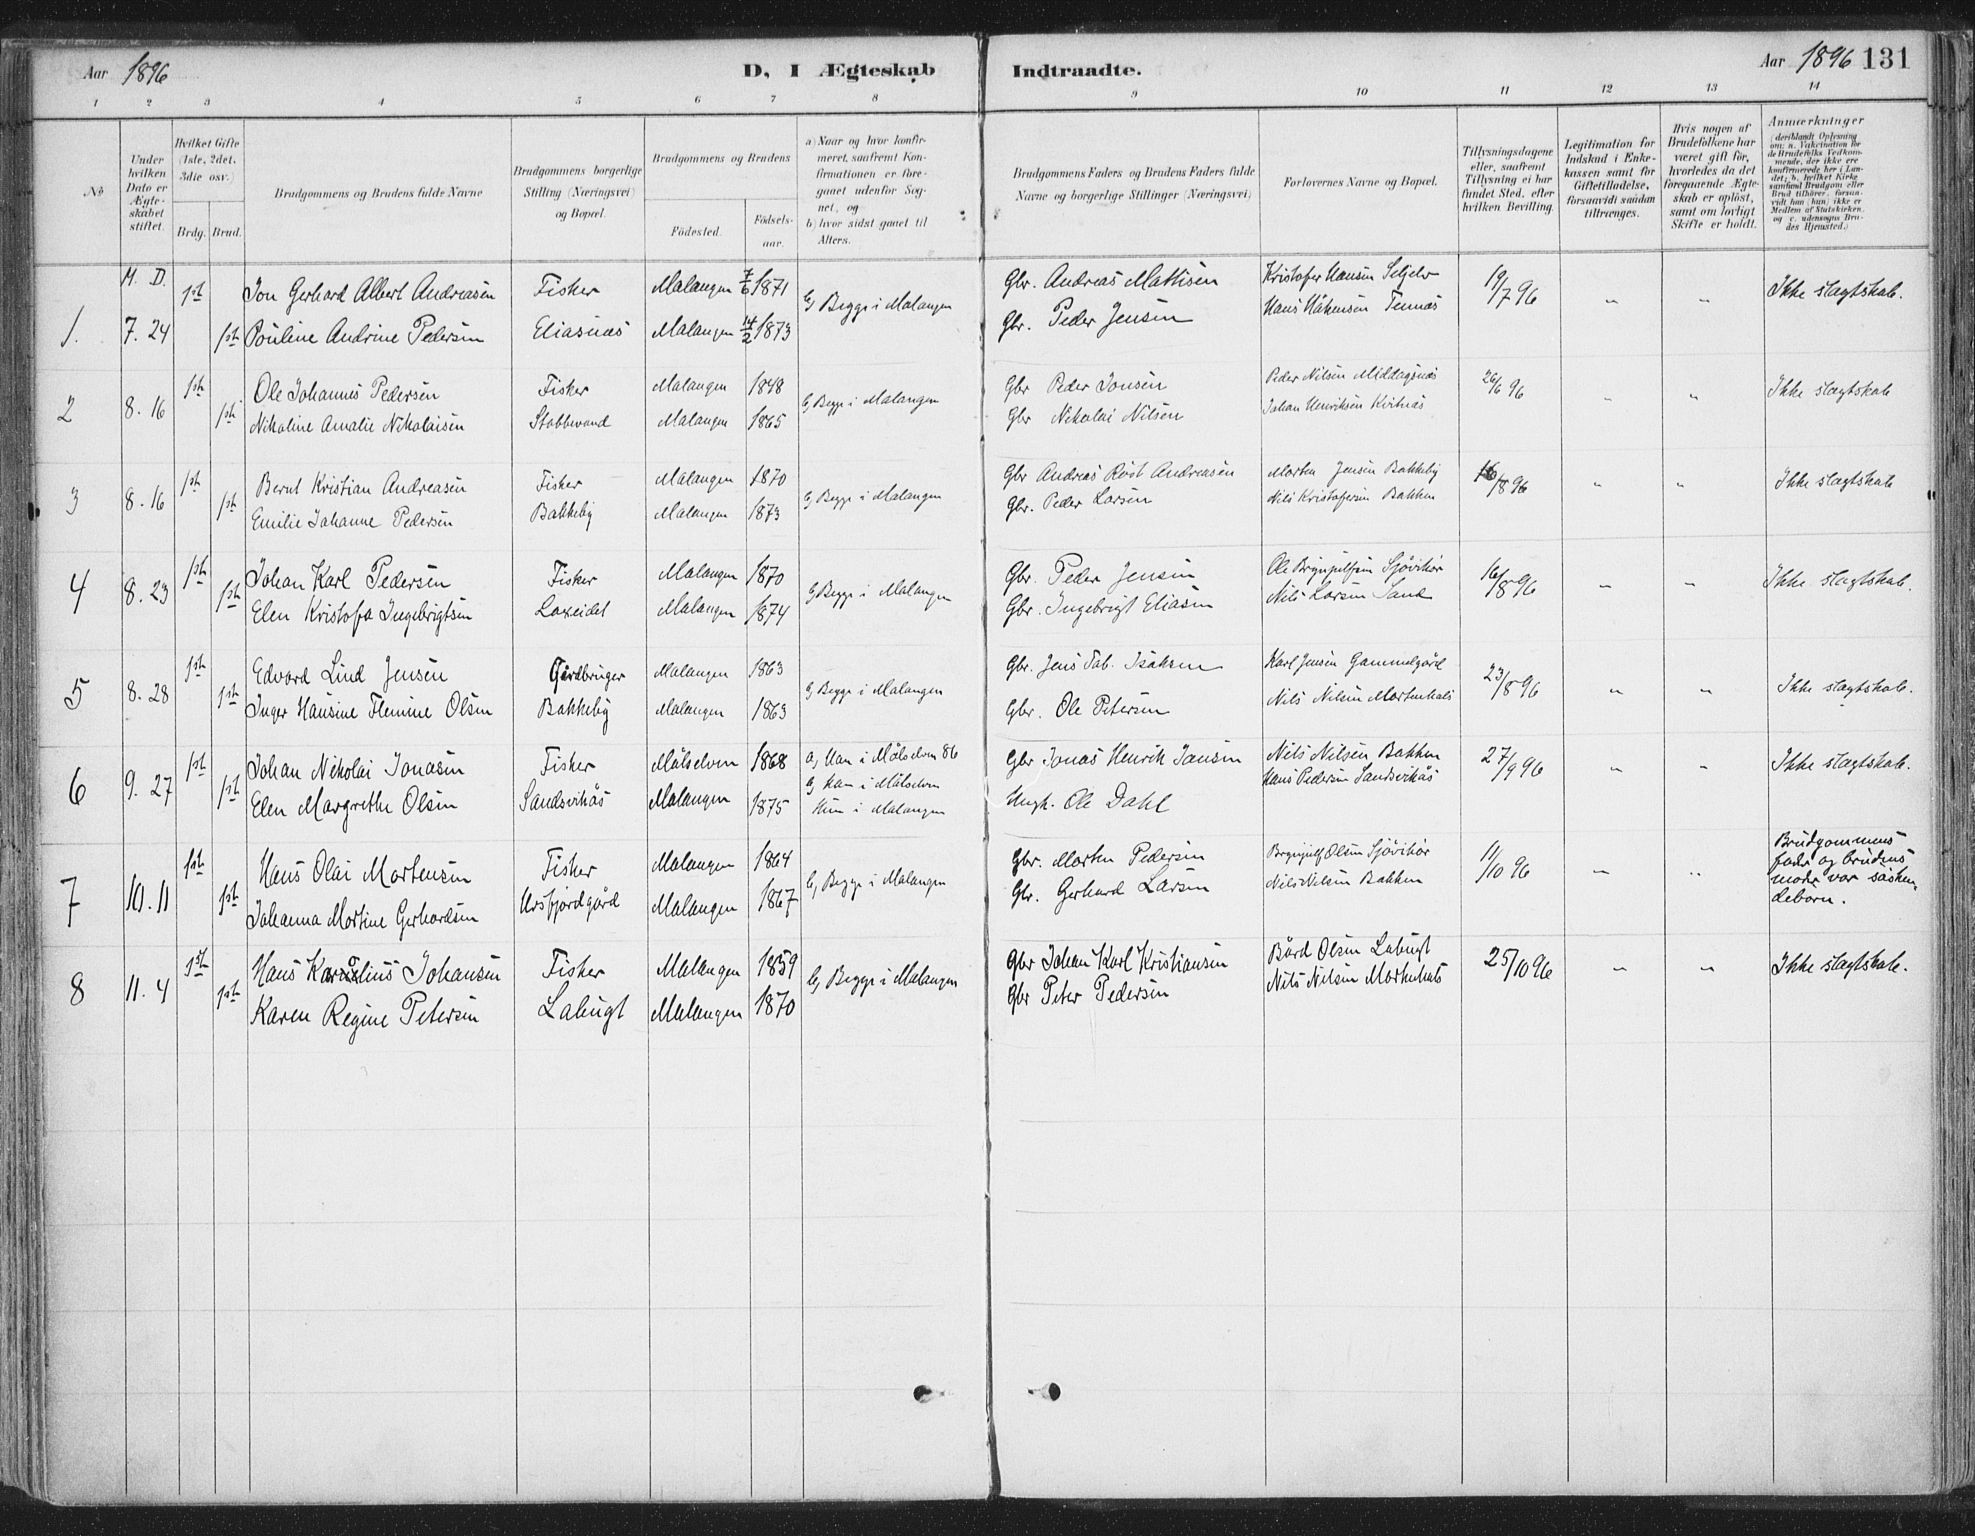 Aar 1896
D, I Ægteskab Indtraadte.
Aar 1896 131
1 2 3 4 5 6 7 8 9 10 11 12 13 14
No
Under hvilken Dato er Ægteskabet stiftet.
Hvilket Gifte (1ste, 2det, 3die osv.)
Brdg. Brud.
Brudgommens og Brudens fulde Navne
Brudgommens borgerlige Stilling (Næringsvei) og Bopæl.
Brudgommens og Brudens
Födested.
Födselsaar.
a) Naar og hvor konfirmeret, saafremt Konfirmationen er foregaaet udenfor Sognet, og
b) hvor sidst gaaet til Alters.
Brudgommens Faders og Brudens Faders fulde Navne og borgerlige Stillinger (Næringsvei)
Forlovernes Navne og Bopæl.
Tillysningsdagene eller, saafremt Tillysning ei har fundet Sted, efter hvilken Bevilling.
Legitimation for Indskud i Enkekassen samt for Giftetilladelse, forsaavidt saadan tiltrænges.
Hvis nogen af Brudefolkene har været gift för, hvorledes da det foregaaende Ægteskab er oplöst, samt om lovligt Skifte er holdt.
Anmærkninger (deriblandt Oplysning om: a. Vakcination for de Brudefolks Vedkommende, der ikke ere konfirmerede her i Landet, b. hvilket Kirkesamfund Brudgom eller Brud tilhörer, forsaavidt han (hun) ikke er Medlem af Statskirken, og c. udensogns Brudes Hjemsted.)
M. D.
1. 7. 24 1ste Jon Gerhard Albert Andreasen Fisker Malangen 7/6 1871 b, Begge i Malangen Gbr. Andreas Mathisen Kristofer Hansen Seljelv 19/7 96 " " Ikke slægtskab.
1ste Pouline Andrine Pedersen Eliasnæs Malangen 14/2 1873 Gbr. Peder Jensen Hans Håkensen Tennæs
2 8. 16 1ste Ole Johannes Pedersen Fisker Malangen 1848 b, Begge i Malangen Gbr Peder Jonsen Peder Nilsen Middagsnæs 26/6 96 " " Ikke slægtskab
1ste Nikoline Amalie Nikolaisen Stobbevand Malangen 1865 Gbr Nikolai Nilsen Johan Henriksen Kvitnæs
3 8. 16 1ste Bernt Kristian Andreasen Fisker Malangen 1870 b, Begge i Malangen Gbr Andreas Røst Andreasen Morten Jensen Bakkeby 16/8 96 " " Ikke slægtskab
1ste Emilie Johanne Pedersen Bakkeby Malangen 1873 Gbr. Peder Larsen Nils Kristofersen Bakken
4 8. 23 1ste Johan Karl Pedersen Fisker Malangen 1870 b, Begge i Malangen Gbr. Peder Jensen Ole Brynjulfsen Sjøvikør 16/8 96 " " Ikke slægtskab.
1ste Elen Kristofa Ingebrigtsen Laxeidet Malangen 1874 Gbr. Ingebrigt Eliasen Nils Larsen Sand
5 8. 28 1ste Edvard Lind Jensen Gårdbruger Malangen 1863 b, Begge i Malangen Gbr. Jens Fab. Isaksen Karl Jensen Gammelgård 23/8 96 " " Ikke slægtskab.
1ste Inger Hansine Flemine Olsen Bakkeby Malangen 1863 Gbr. Ole Petersen Nils Nilsen Mortenhals
6 9. 27 1ste Johan Nikolai Jonasen Fisker Målselven 1868 a, Han i Målselven 86 Gbr Jonas Henrik Jansen Nils Nilsen Bakken 27/9 96 " " Ikke slægtskab.
1ste Elen Margrethe Olsen Sandsvikås Malangen 1875 b, Han i Målselven Hun i Malangen Ungk. Ole Dahl Hans Pedersen Sandsvikås
7 10. 11 1ste Hans Olai Mortensen Fisker Malangen 1864 b, Begge i Malangen Gbr. Morten Pedersen Brynjulf Olsen Sjøvikør 11/10 96 " " Brudgommens fader og brudens moder var søskendeborn.
1ste Johanna Martine Gerhardsen Ursfjordgård Malangen 1867 Gbr. Gerhard Larsen Nils Nilsen Bakken
8 11. 4 1ste Hans Kornelius Johansen Fisker Malangen 1859 b, Begge i Malangen Gbr Johan Karl Kristiansen Bård Olsen Labugt 25/10 96 " " Ikke slægtskab.
1ste Karen Regine Petersen Labugt Malangen 1870 Gbr Peter Pedersen Nils Nilsen Mortenhals